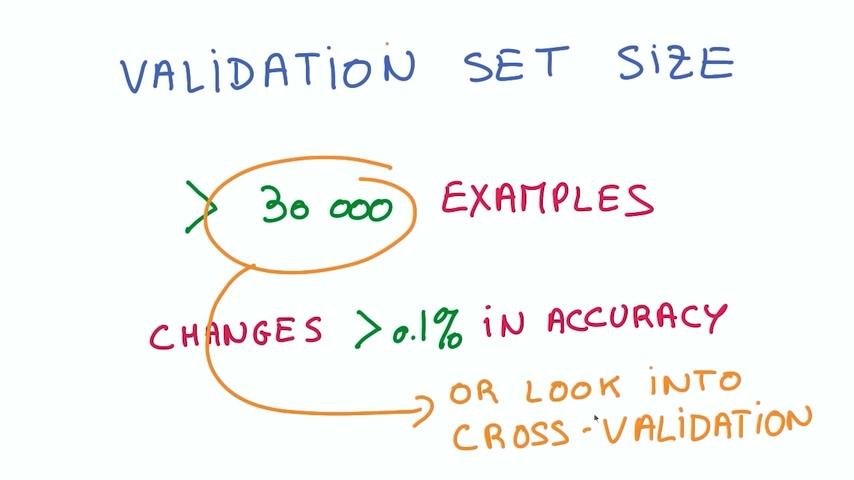 VALiDATiON SET SiZE
> 30 000 EXAMPLES
CHANGES > 0.1% iN ACCURACY
OR LOOK iNTO
CROSS-VALiDATiON